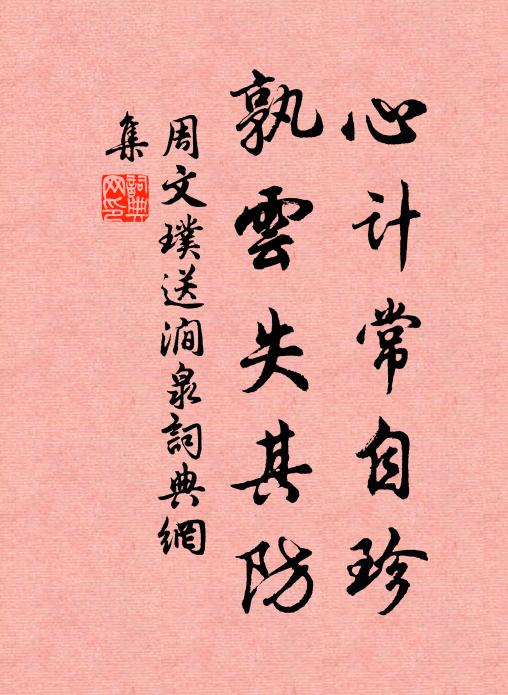 心计常自珍
孰雲失其防
周文璞送涧泉詞典網
集
詞典网印